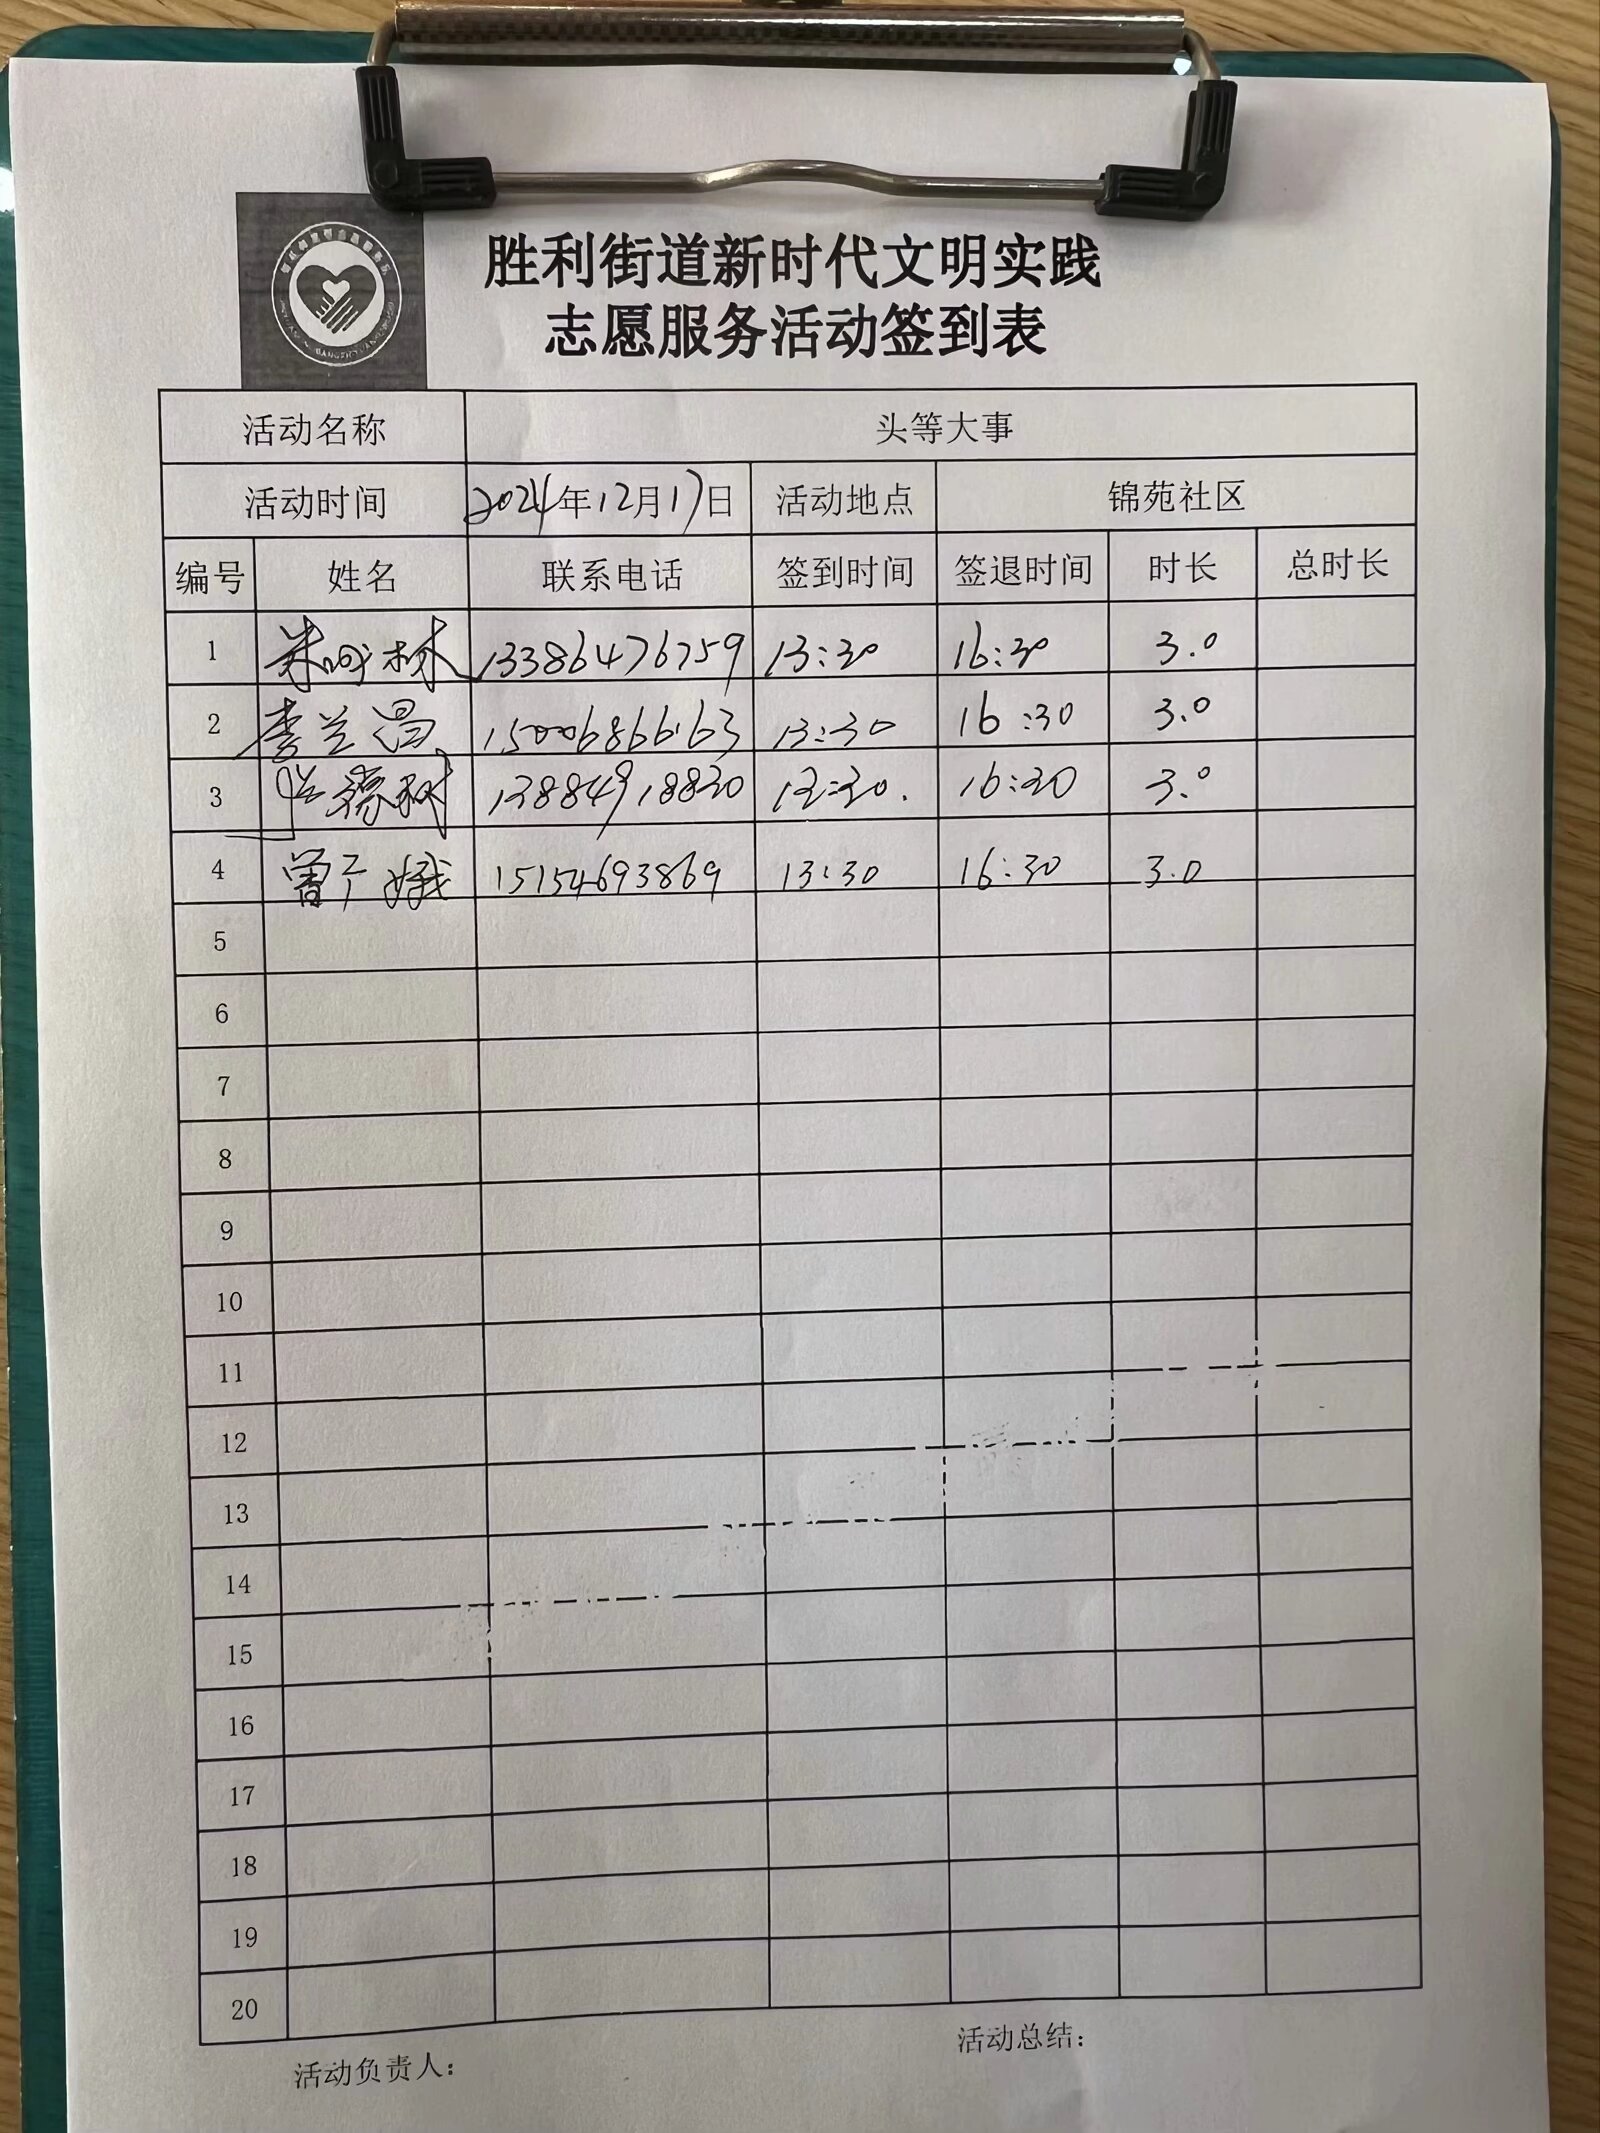 胜利街道新时代文明实践
志愿服务活动签到表
活动名称 头等大事
活动时间 2024年12月17日 活动地点 锦苑社区
编号 姓名 联系电话 签到时间 签退时间 时长 总时长
1 13386476759 13:30 16:30 3.0
2 李兰昌 15006866163 13:30 16:30 3.0
3 13884918830 13:30. 16:30 3.0
4 曾子娥 15154693869 13:30 16:30 3.0
5
6
7
8
9
10
11
12
13
14
15
16
17
18
19
20
活动负责人: 活动总结: